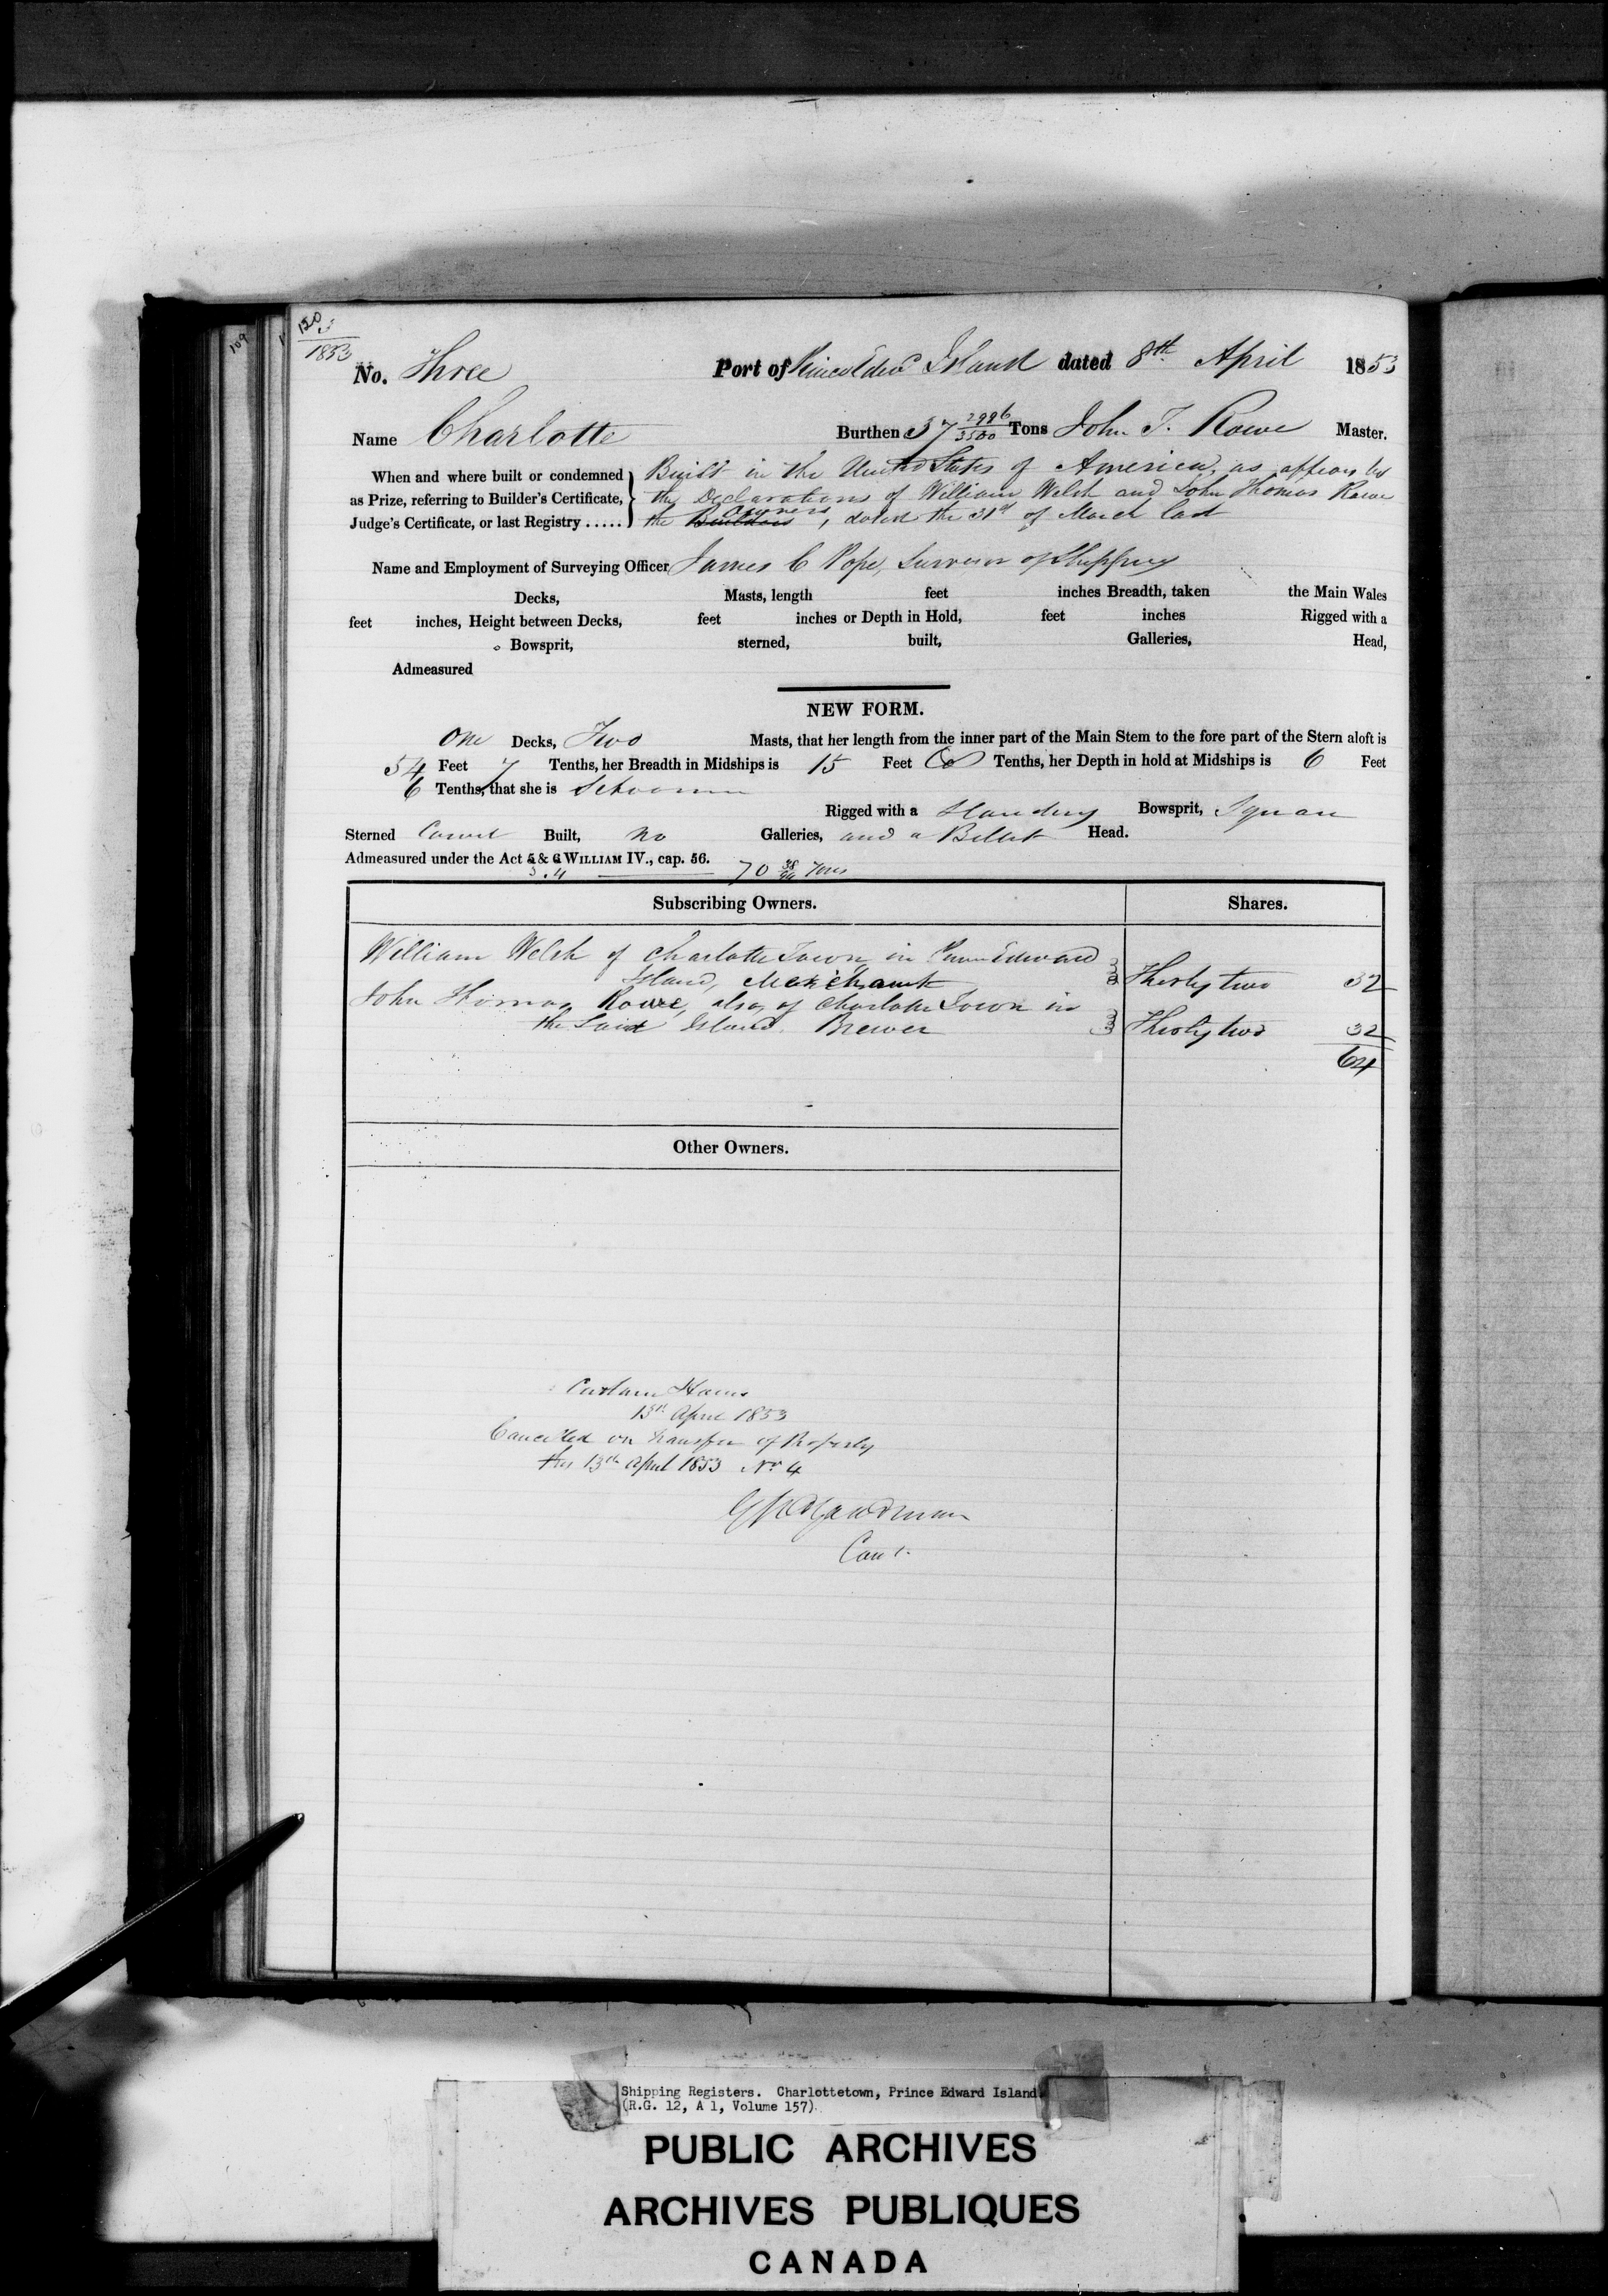 109
120
3
1853
No. Three Port of Prince Edwd Island dated 8th April 1853
Name Charlotte Burthen 57 2996/3500 Tons John T. Rowe Master.
When and where built or condemned Built in the United States of America, as appears by
as Prize, referring to Builder's Certificate, the Declarations of William Welsh and John Thomas Rowe
Judge's Certificate, or last Registry ..... the Builders Owners, dated the 31st of March last
Name and Employment of Surveying Officer James C Pope, Surveyor of Shipping
Decks, Masts, length feet inches Breadth, taken the Main Wales
feet inches, Height between Decks, feet inches or Depth in Hold, feet inches Rigged with a
Bowsprit, sterned, built, Galleries, Head,
Admeasured
NEW FORM.
One Decks, Two Masts, that her length from the inner part of the Main Stem to the fore part of the Stern aloft is
54 Feet 7 Tenths, her Breadth in Midships is 15 Feet 8 Tenths, her Depth in hold at Midships is 6 Feet
6 Tenths, that she is Schooner
Rigged with a Standing Bowsprit, Square
Sterned Carvel Built, No Galleries, and a Billet Head.
Admeasured under the Act 5 & 6 WILLIAM IV., cap. 56.
3.4 70 38/94 Tons
Subscribing Owners. Shares.
William Welsh of Charlotte Town in Prince Edward
Island, Merchant Thirty two 32
John Thomas Rowe, also of Charlotte Town in
the said Island. Brewer Thirty two 32
64
Other Owners.
Custom House
13th April 1853
Cancelled on transfer of Property
this 13th April 1853 No 4
Cont.
Shipping Registers. Charlottetown, Prince Edward Island
(R.G. 12, A 1, Volume 157).
PUBLIC ARCHIVES
ARCHIVES PUBLIQUES
CANADA